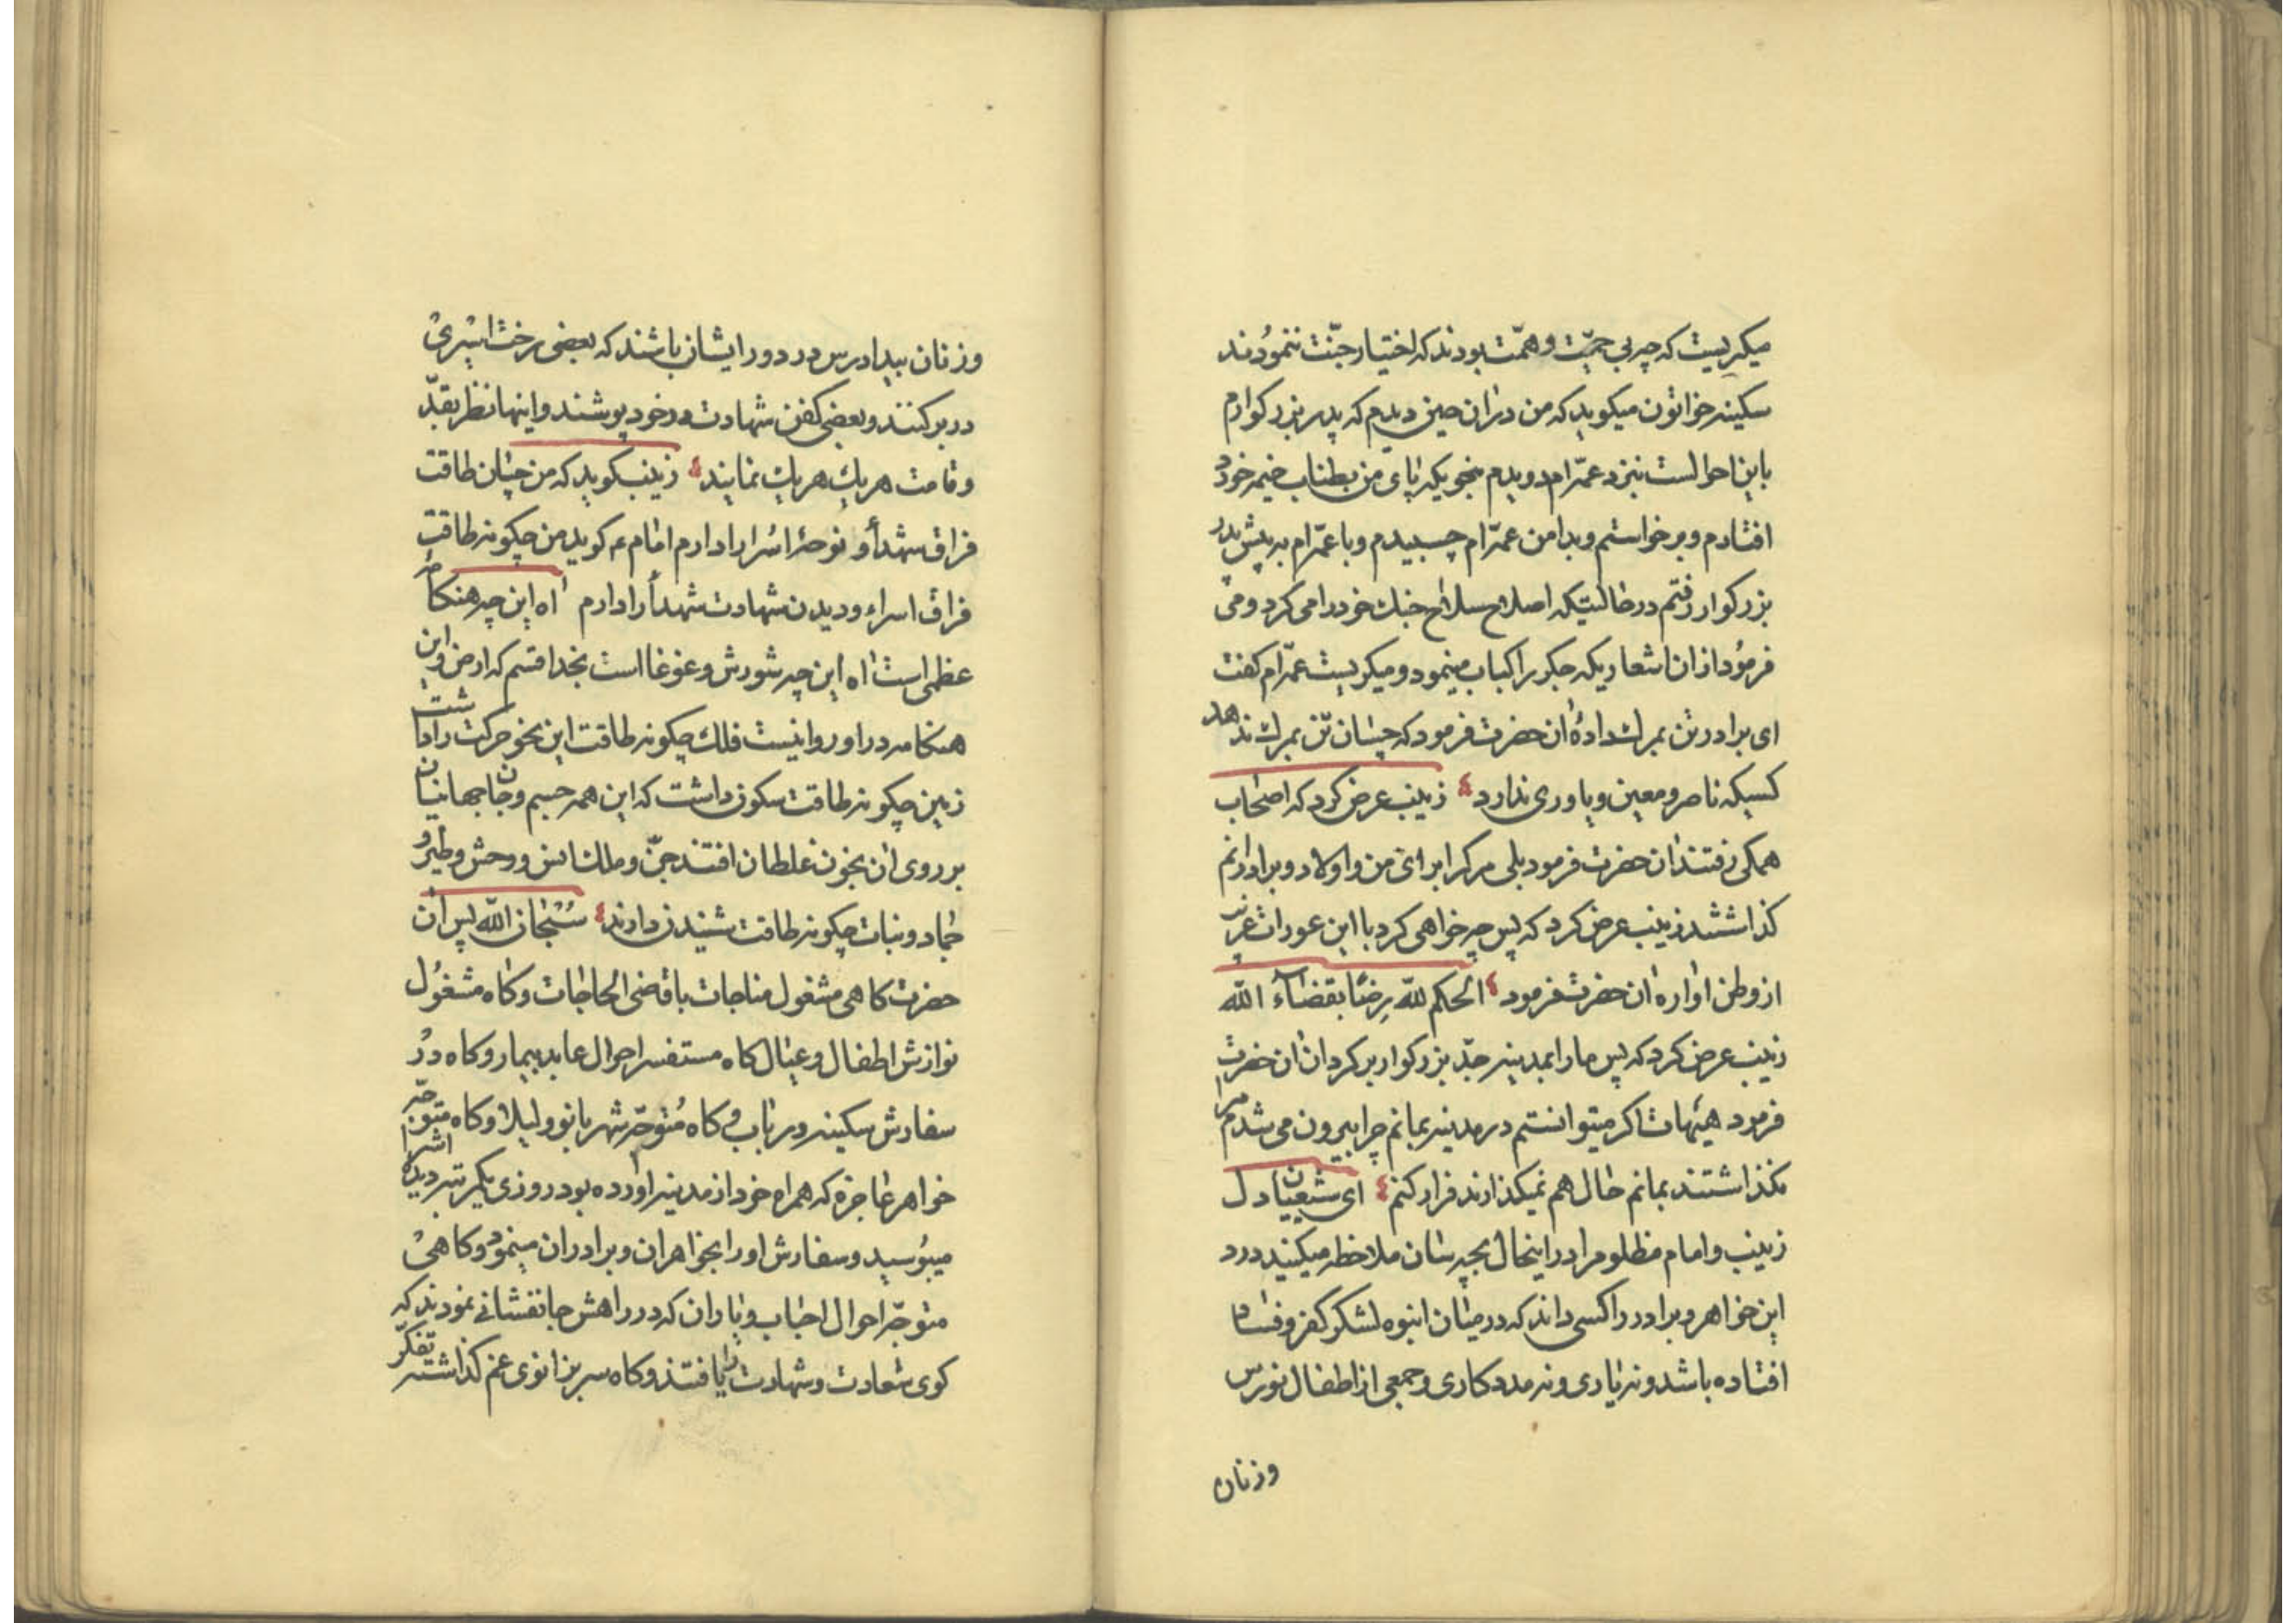 میکریست که چه بی حمیّت و همّت بودند که اختیار جنّت ننمودند
سکینه خواتون میکوید که من دران حین دیدم که پدر بزرکوارم
باین احوالست بنزد عمّه ام دویدم بنحویکه پای من بطناب خیمه خورد
افتادم و برخواستم و بدامن عمّه ام چسبیدم و با عمّه ام به پیش پدر
بزرکوار رفتم در حالتیکه اصلاح سلاح جنک خود را می کرد و می
فرمود ازان اشعاریکه جکر را کباب مینمود و میکریست عمّه ام کفت
ای برادر تن بمرک دادهٔ ان حضرت فرمود که چسان تن بمرک ندهد
کسیکه ناصر و معین و یاوری ندارد زینب عرض کرد که اصحاب
همکی رفتند ان حضرت فرمود بلی مرک را برای من و اولاد و برادرانم
کذاشتند زینب عرض کرد که پس چه خواهی کرد با این عورات غریب
از وطن اواره ان حضرت فرمود الحکم للّه رضًا بقضاء اللّه
زینب عرض کرد که پس ما را بمدینه جدّ بزرکوار برکردان ان حضرت
فرمود هیهات اکر میتوانستم در مدینه بمانم چرا بیرون می شدم مرا
نکذاشتند بمانم حال هم نمیکذارند فرار کنم ای شیعیان دل
زینب و امام مظلوم را در اینحال بچه سان ملاحظه میکنید درد
این خواهر و برادر را کسی داند که در میان انبوه لشکر کفر و فساد
افتاده باشد و نه یاری و نه مددکاری و جمعی از اطفال نورس
وزنان
وزنان بیدادرس در دور ایشان باشند که بعضی رخت اسیری
در بر کنند و بعضی کفن شهادت در خود پوشند و اینها نظر بقدّ
و قامت هریک هریک نمایند زینب کوید که من چسان طاقت
فراق شهدأ و نوحهٔ اسرا را دارم امام ع کوید من چکونه طاقت
فراق اسراء و دیدن شهادت شهدأ را دارم اه این چه هنکامهٔ
عظمی است اه این چه شورش و غوغا است بخدا قسم که ارض و این
هنکامه در او روا نیست فلک چکونه طاقت این نحو حرکت را داشت
زمین چکونه طاقت سکون داشت که این همه جسم و جان جهانیان
بر روی ان بخون غلطان افتند جنّ و ملک انس و وحش و طیر و
جماد و نبات چکونه طاقت شنیدن دارند سُبْحان اللّه پس ان
حضرت کاهی مشغول مناجات با قاضی الحاجات و کاه مشغول
نوازش اطفال و عیال کاه مستفسر احوال عابد بیمار و کاه در
سفارش سکینه و رباب و کاه متوجّه شهربانو و لیلا و کاه متوجّه
خواهر عاجزه که همراه خود از مدینه اورده بود روزی یکمرتبه دیده اشرا
میبوسید و سفارش او را بخواهران و برادران مینمود و کاهی
متوجّه احوال احباب و یاران که در راهش جانفشانی نمودند که
کوی سعادت و شهادت را یافتند و کاه سر بزانوی غم کذاشته تفکّر